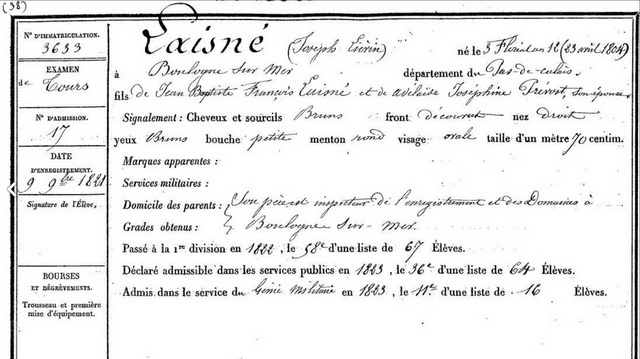 (38)
N° D'IMMATRICULATION.
3633
EXAMEN
de Tours
N° D'ADMISSION.
17
DATE
D'ENREGISTREMENT.
9 9bre 1821
Signature de l'Élève.
BOURSES
ET DÉGRÈVEMENTS.
Trousseau et première
mise d'équipement.
Laisné (Joseph Isérin) né le 3 Floréal an 12 (23 avril 1804)
à Boulogne sur Mer département du Pas-de-calais
fils de Jean Baptiste François Laisné et de adelaïde Joséphine Prévost, son épouse
Signalement : Cheveux et sourcils Bruns front découvert nez droit
yeux Bruns bouche petite menton rond visage ovale taille d'un mètre 70 centim.
Marques apparentes :
Services militaires :
Domicile des parents : Son père est inspecteur de l'enregistrement et des Domaines à
Grades obtenus : Boulogne sur-Mer.
Passé à la 1re division en 1822, le 58e d'une liste de 67 Élèves.
Déclaré admissible dans les services publics en 1823, le 36e d'une liste de 64 Élèves.
Admis dans le service du Génie Militaire en 1823, le 11e d'une liste de 16 Élèves.